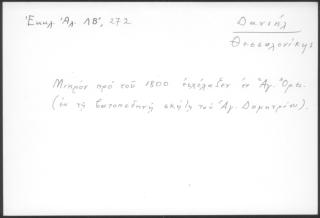 Ἐκκλ. Ἀλ. ΛΒ', 272
Δανιήλ
Θεσσαλονίκης
Μικρὸν πρὸ τοῦ 1800 ἐσχόλαζεν ἐν Ἁγ. Ὄρει.
(ἐν τῇ Βατοπεδινῇ σκήτῃ τοῦ Ἁγ. Δημητρίου).